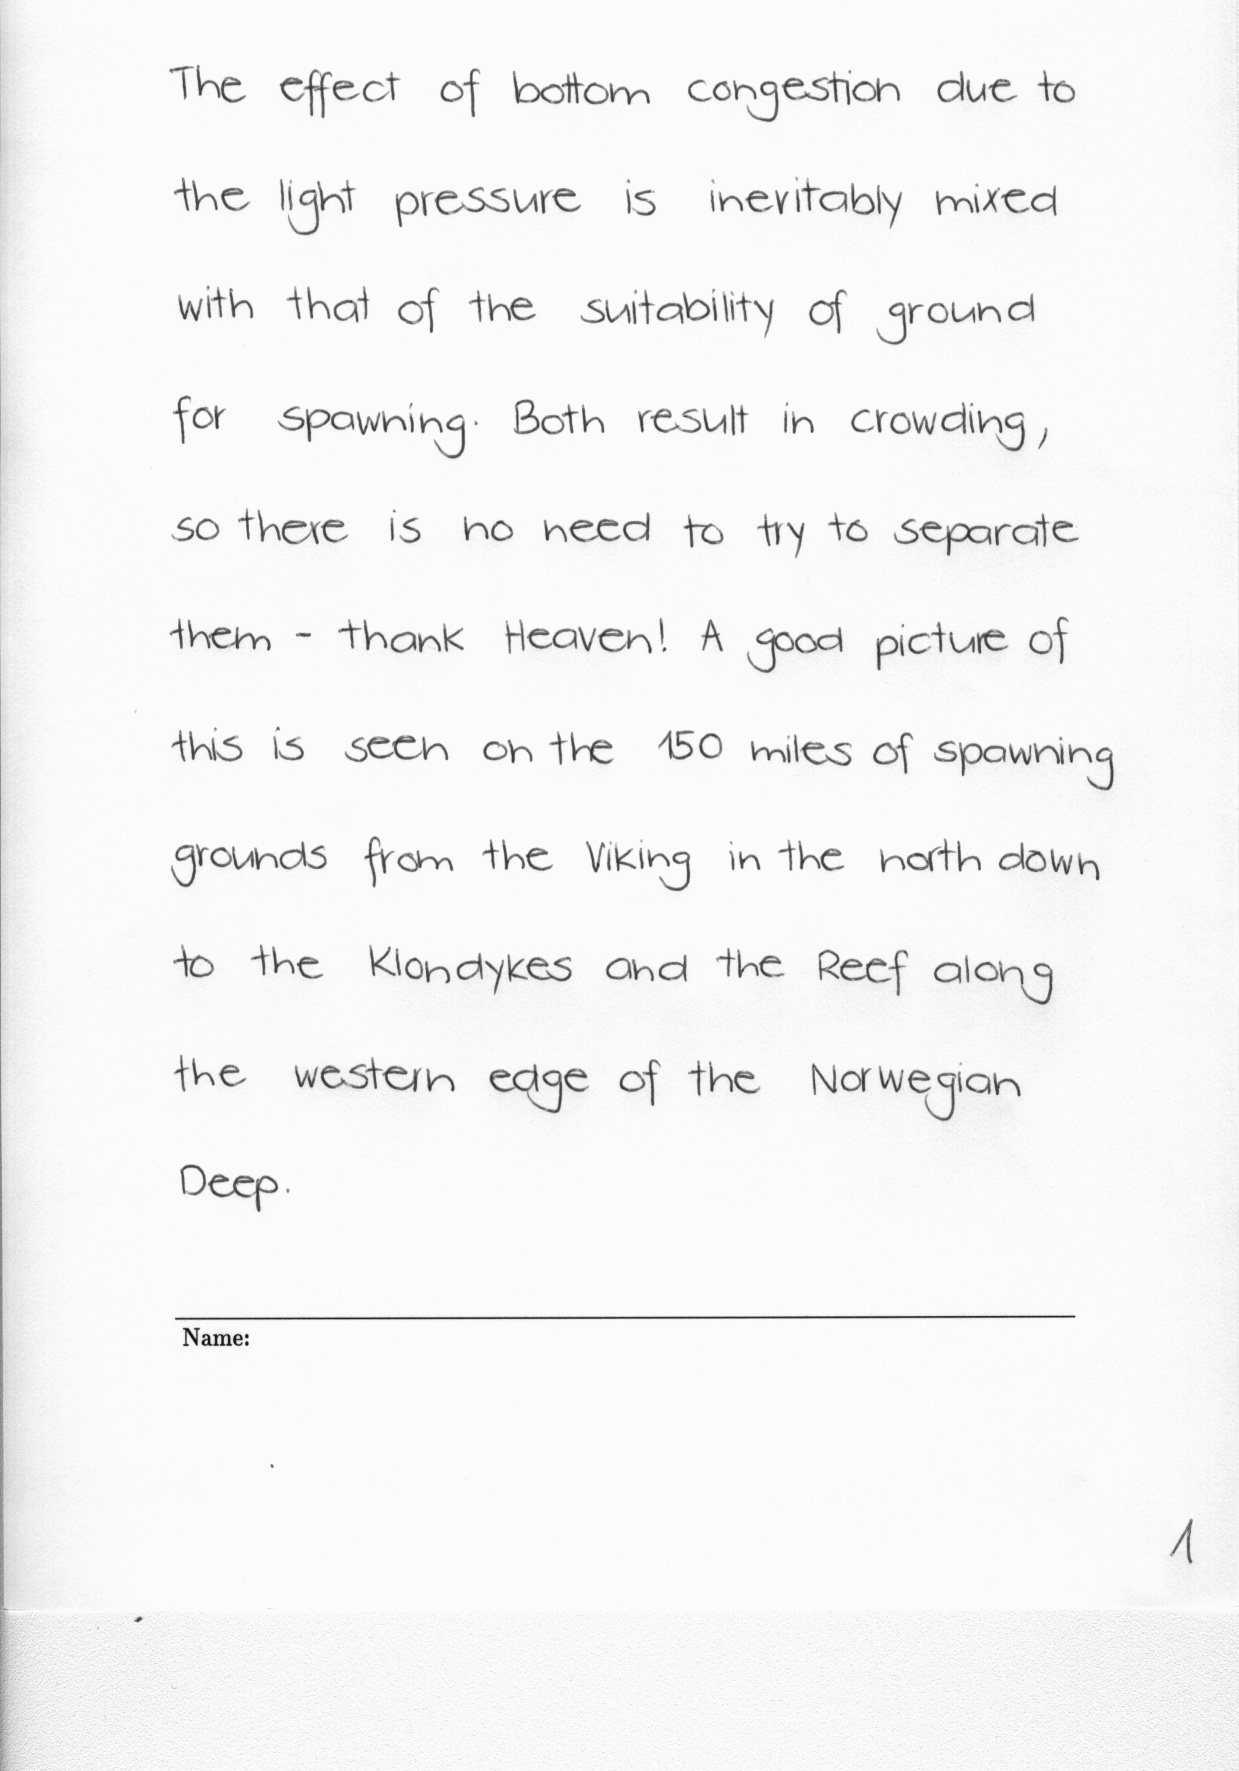 The effect of bottom congestion due to
the light pressure is inevitably mixed
with that of the suitability of ground
for spawning. Both result in crowding,
so there is no need to try to separate
them - thank Heaven! A good picture of
this is seen on the 150 miles of spawning
grounds from the Viking in the north down
to the Klondykes and the Reef along
the western edge of the Norwegian
Deep.
Name:
1